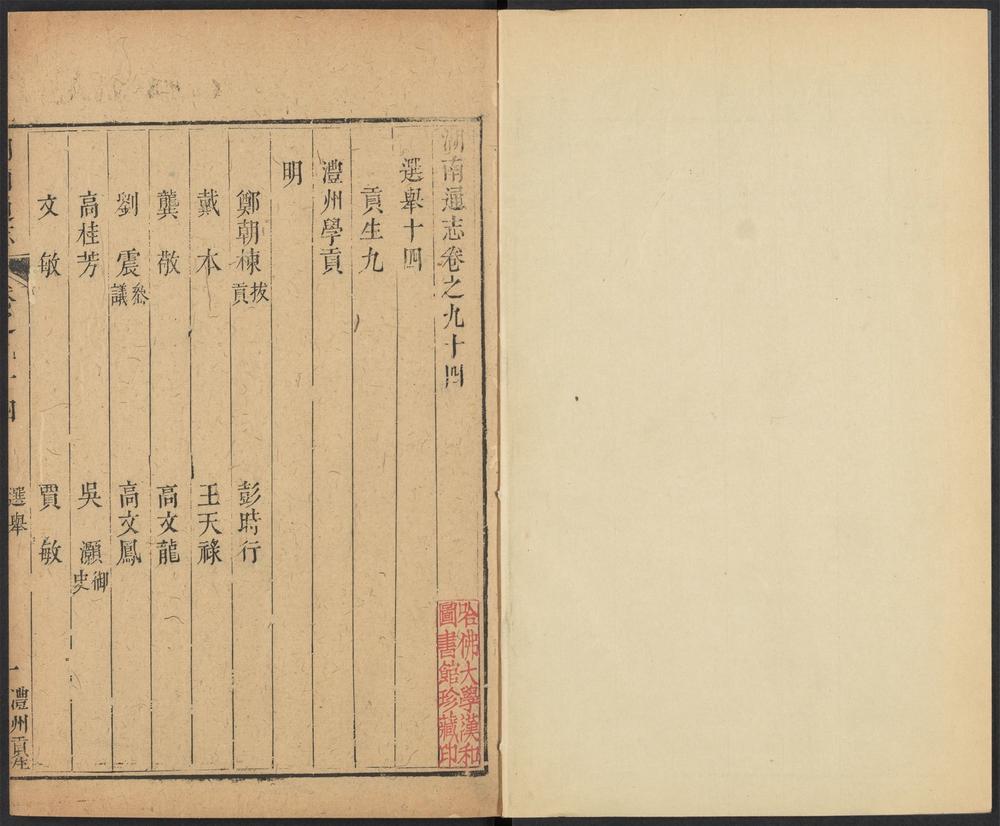 湖南通志卷之九十四
選舉十四
貢生九
澧州學貢
明
鄭朝棟拔貢 彭時行
戴本 王天祿
龔敬 高文龍
劉震參議 高文鳳
高桂芳 吳灝御史
文敏 賈敏
選舉 一 澧州貢生
哈佛大學漢和
圖書館珍藏印